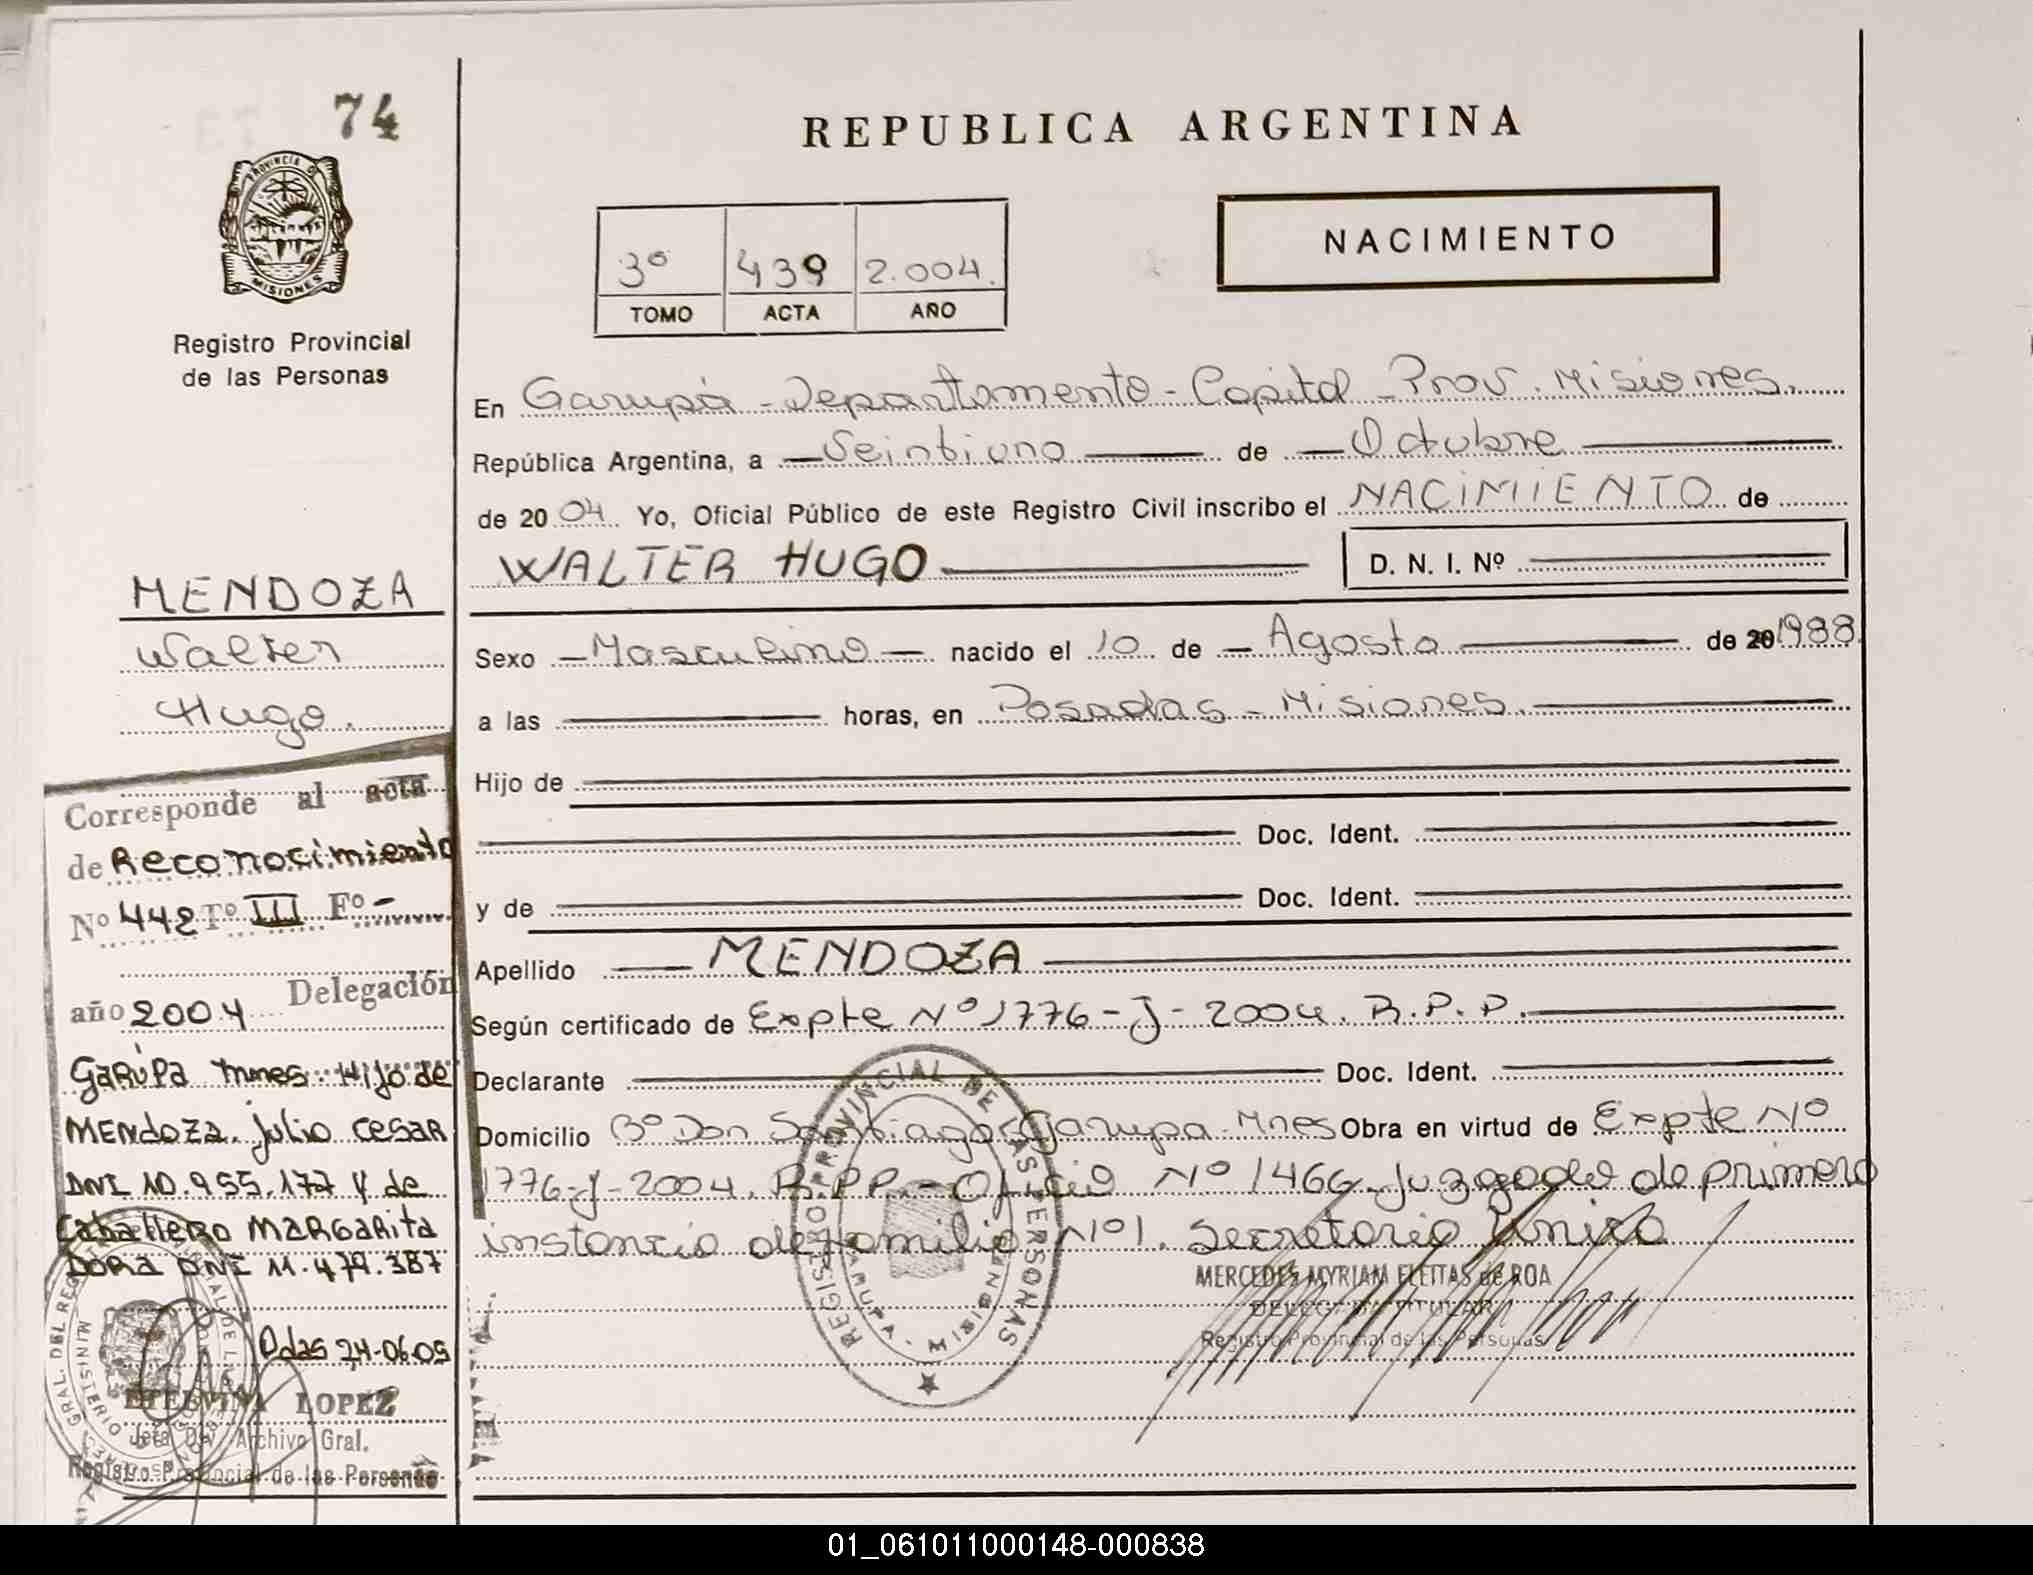 74
REPUBLICA ARGENTINA
PROVINCIA D
MISIONES
Registro Provincial
de las Personas
NACIMIENTO
3º 439 2.004.
TOMO ACTA AÑO
En Garupá - Departamento - Capital - Prov. Misiones.
República Argentina, a — Veintiuno — de — Octubre —
de 2004. Yo, Oficial Público de este Registro Civil inscribo el NACIMIENTO de
WALTER HUGO — D. N. I. Nº —
MENDOZA
Walter
Hugo.
Sexo — Masculino — nacido el 10 de — Agosto — de 20 1988.
a las — horas, en Posadas - Misiones. —
Hijo de —
— Doc. Ident. —
y de — Doc. Ident. —
Apellido — MENDOZA —
Según certificado de Expte Nº 1776-J-2004. R.P.P. —
Declarante — Doc. Ident. —
Domicilio Bº Don Santiago Garupa Mnes Obra en virtud de Expte Nº
1776-J-2004. R.P.P. - Oficio Nº 1466 Juzgado de primera
instancia de familia Nº 1. Secretaria Unica
MERCEDES MYRIAM FLEITAS de ROA
DELEGADA TITULAR
Registro Provincial de las Personas
REGISTRO PROVINCIAL DE LAS PERSONAS
GARUPA - MISIONES
Corresponde al acta
de Reconocimiento
Nº 442 Tº III Fº -
año 2004 Delegación
Garupa mnes. Hijo de
MENdoza. julio cesar
DNI 10.955.177 y de
Caballero Margarita
Doria DNI 11.479.387
Pdas 24-06-05
ETELVINA LOPEZ
Jefa Div. Archivo Gral.
Registro Provincial de las Personas
01_061011000148-000838